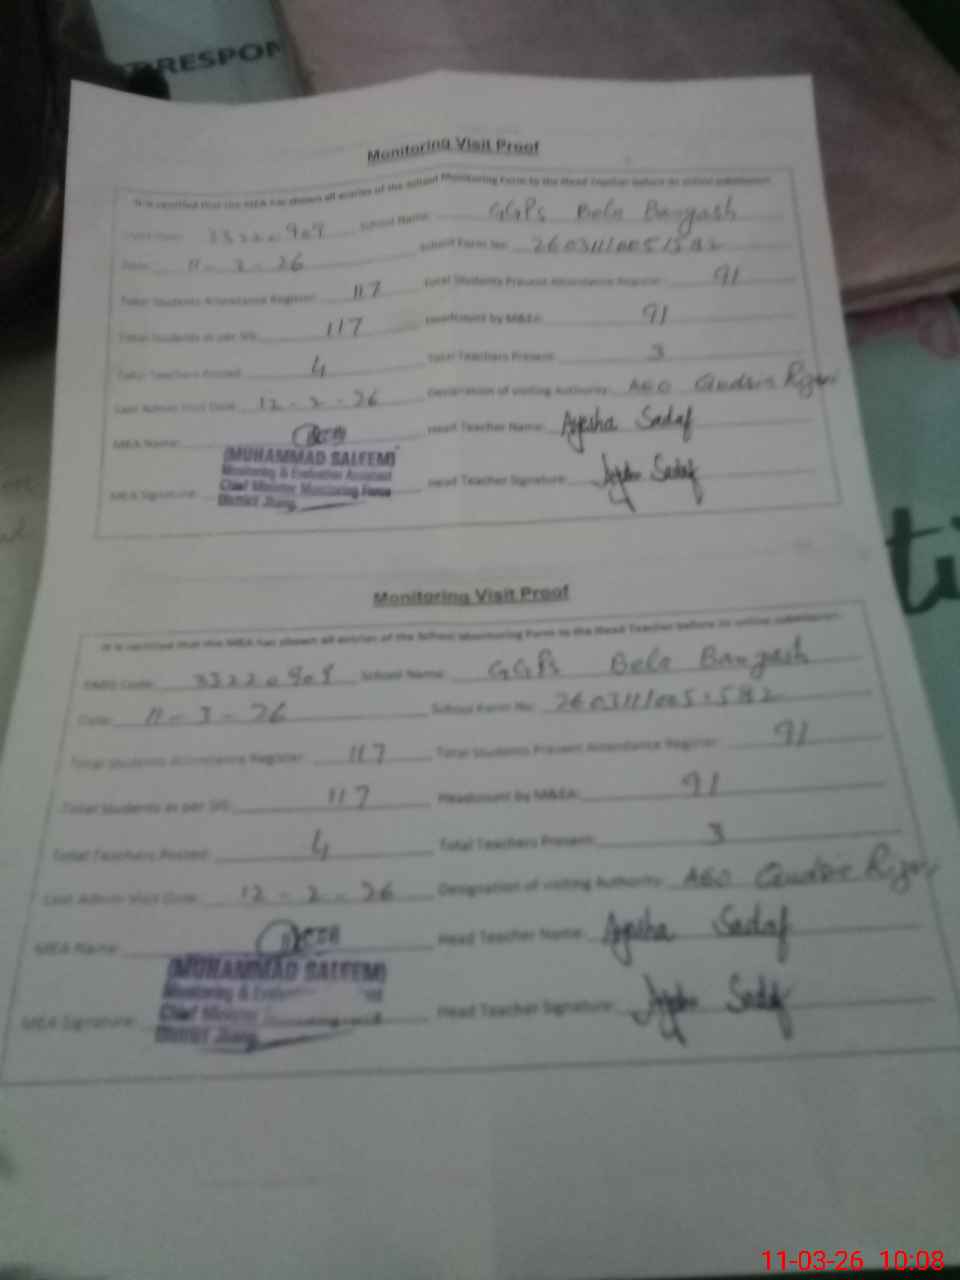 RRESPON
Monitoring Visit Proof
It is certified that the MEA has shown all entries of the School Monitoring Form to the Head Teacher before its online submission.
33220909 School Name: GGPS Bela Bangash
Date: 11-3-26 School Form No:
Total Students Attendance Register: 117 Total Students Present Attendance Register: 91
Total Students as per SIS: 117 Headcount by M&EA: 91
Total Teachers Posted: 4 Total Teachers Present: 3
Last Admin Visit Date: 12-2-26 Designation of visiting Authority: AEO
MEA Name: Head Teacher Name: Ayesha Sadaf
(MUHAMMAD SALEEM)
Monitoring & Evaluation Assistant
Chief Minister Monitoring Force
District Jhang
MEA Signature: Head Teacher Signature: Sadaf
Monitoring Visit Proof
It is certified that the MEA has shown all entries of the School Monitoring Form to the Head Teacher before its online submission.
EMIS Code: School Name: GGPS Bela Bangash
Date: 11-3-26 School Form No:
Total Students Attendance Register: 117 Total Students Present Attendance Register: 91
Total Students as per SIS: 117 Headcount by M&EA: 91
Total Teachers Posted: 4 Total Teachers Present: 3
Last Admin Visit Date: 12-2-26 Designation of visiting Authority: AEO
MEA Name: Head Teacher Name: Ayesha Sadaf
(MUHAMMAD SALEEM)
Monitoring &
Chief Minister
District Jhang
MEA Signature: Head Teacher Signature: Sadaf
11-03-26 10:08